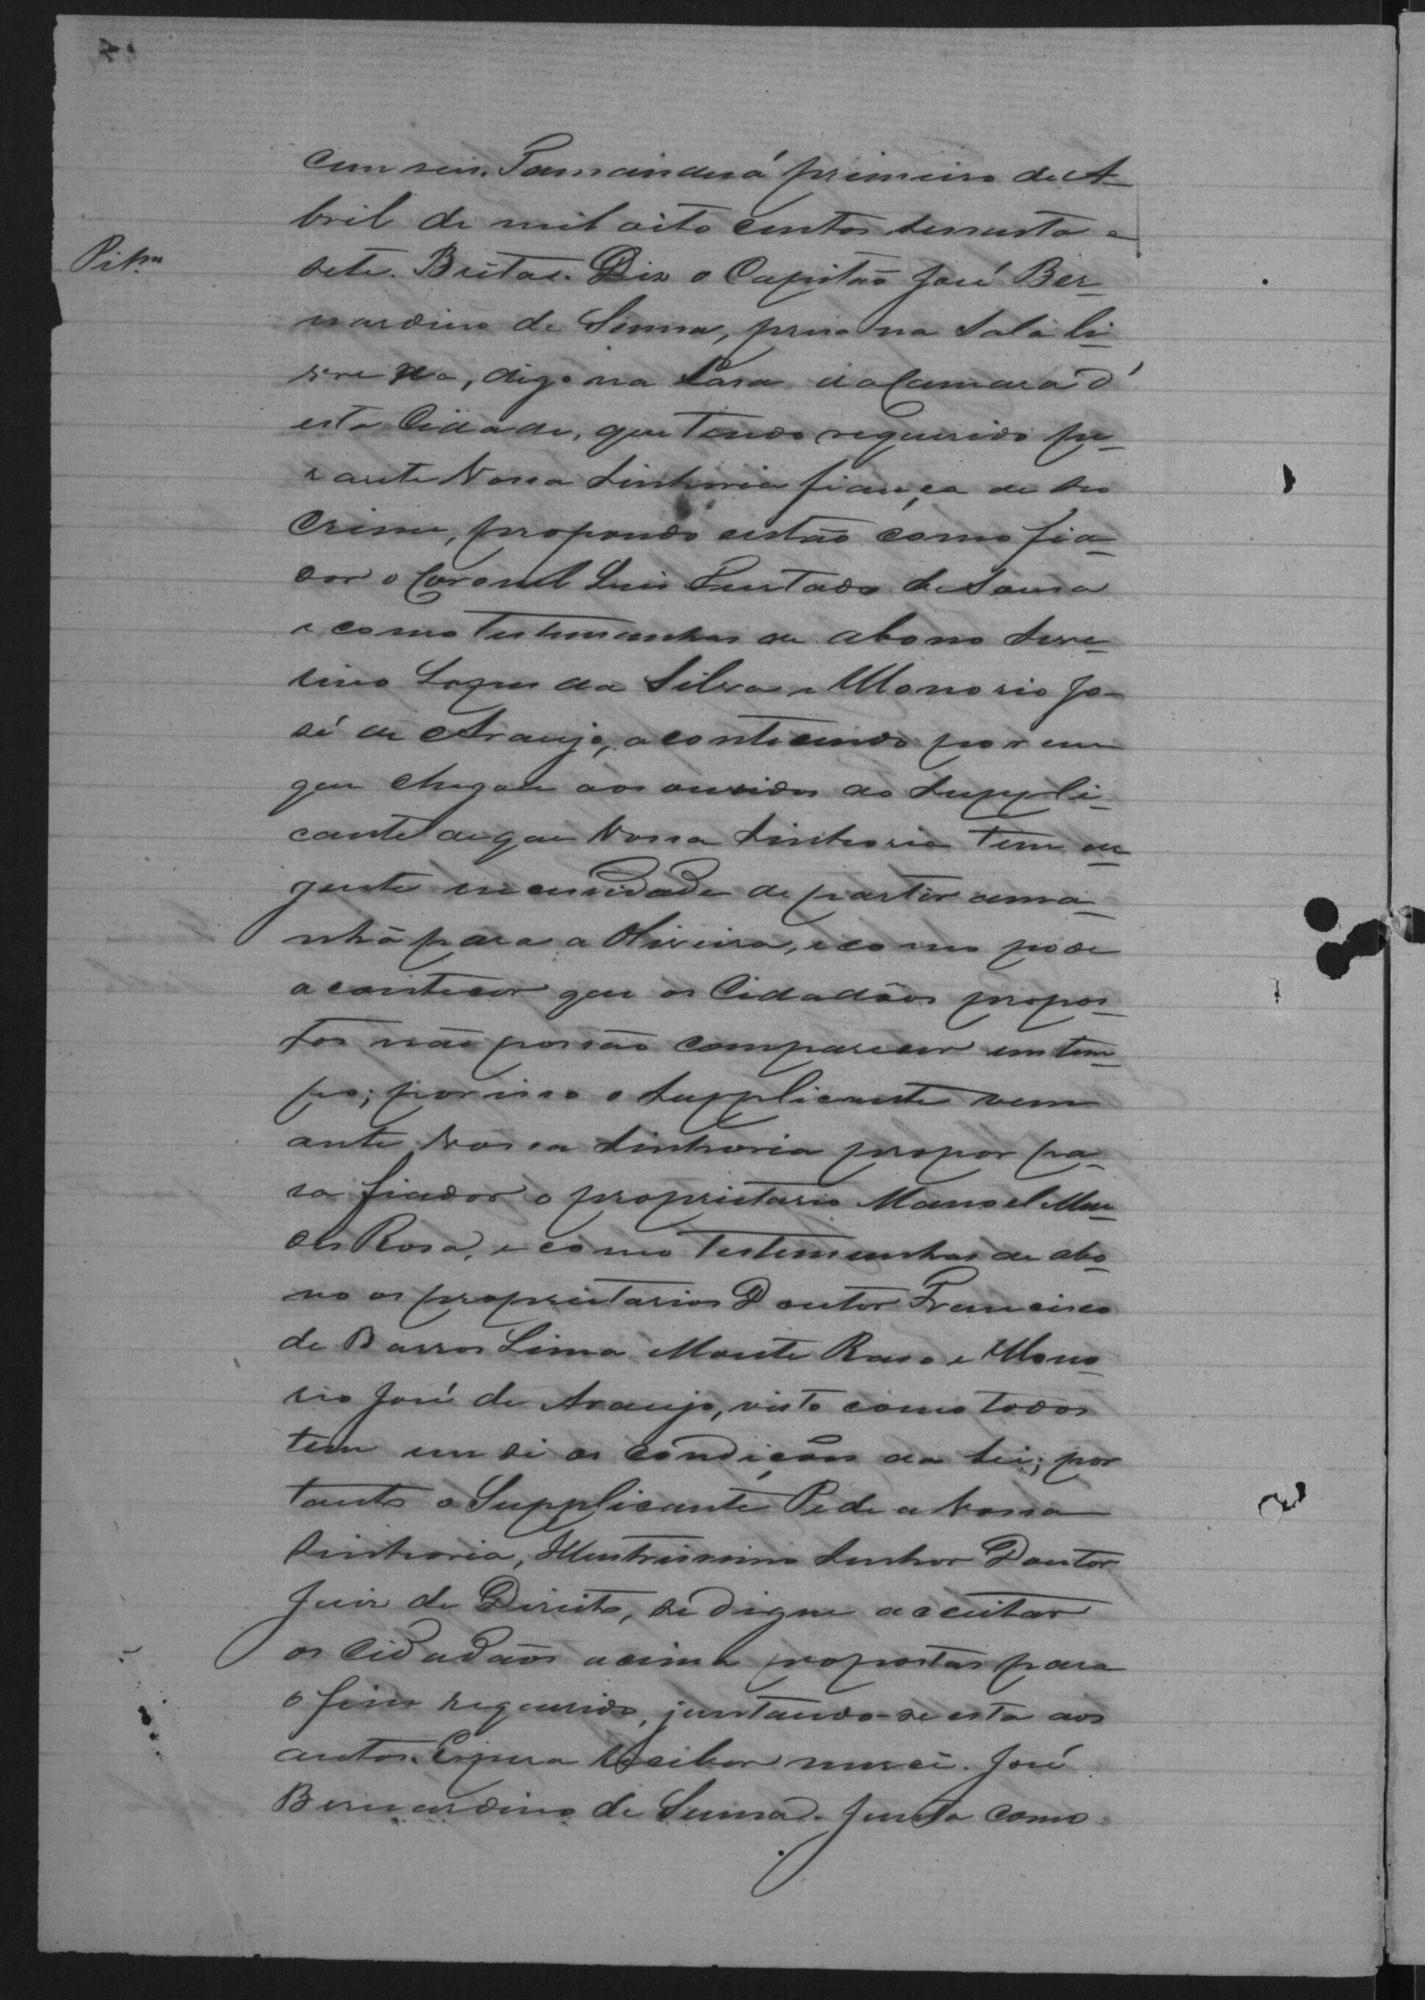 cum seis. Tamanduá primeiro de A-
bril de mil oito centos sessenta e
Pit.m
sete. Britas. Diz o Capitão José Ber-
nardino de Senna, preso na Sala li-
vre da, digo na Casa da Camara d'
esta Cidade, que tendo requerido pe-
rante Vossa Senhoria fiança de seu
crime, propondo então como fia-
dor o Coronel Luis Furtado de Sousa
e como testemunhas de abono Seve-
rino Lopes da Silva e Honorio Jo-
sé de Araujo, acontecendo porem
que chegou aos ouvidos do Suppli-
cante de que Vossa Senhoria tem ur-
gente necessidade de partir ama-
nhã para a Oliveira, e como pode
acontecer que os Cidadãos propos-
tos não possão comparecer em tem-
po; por isso o Supplicante vem
ante Vossa Senhoria propor pa-
ra fiador o proprietario Manoel Men-
des Rosa, e como testemunhas de abo-
no os proprietarios Doutor Francisco
de Barros Lima Monte Raso e Hono-
rio José de Araujo, visto como todos
tem em si as condições da Lei; por
tanto o Supplicante Pede a Vossa
Senhoria, Illustrissimo Senhor Doutor
Juiz de Direito, se digne acceitar
os Cidadãos acima propostos para
o fim requerido, juntando-se esta aos
autos. Espera receber mercê. José
Bernardino de Senna. Junta como